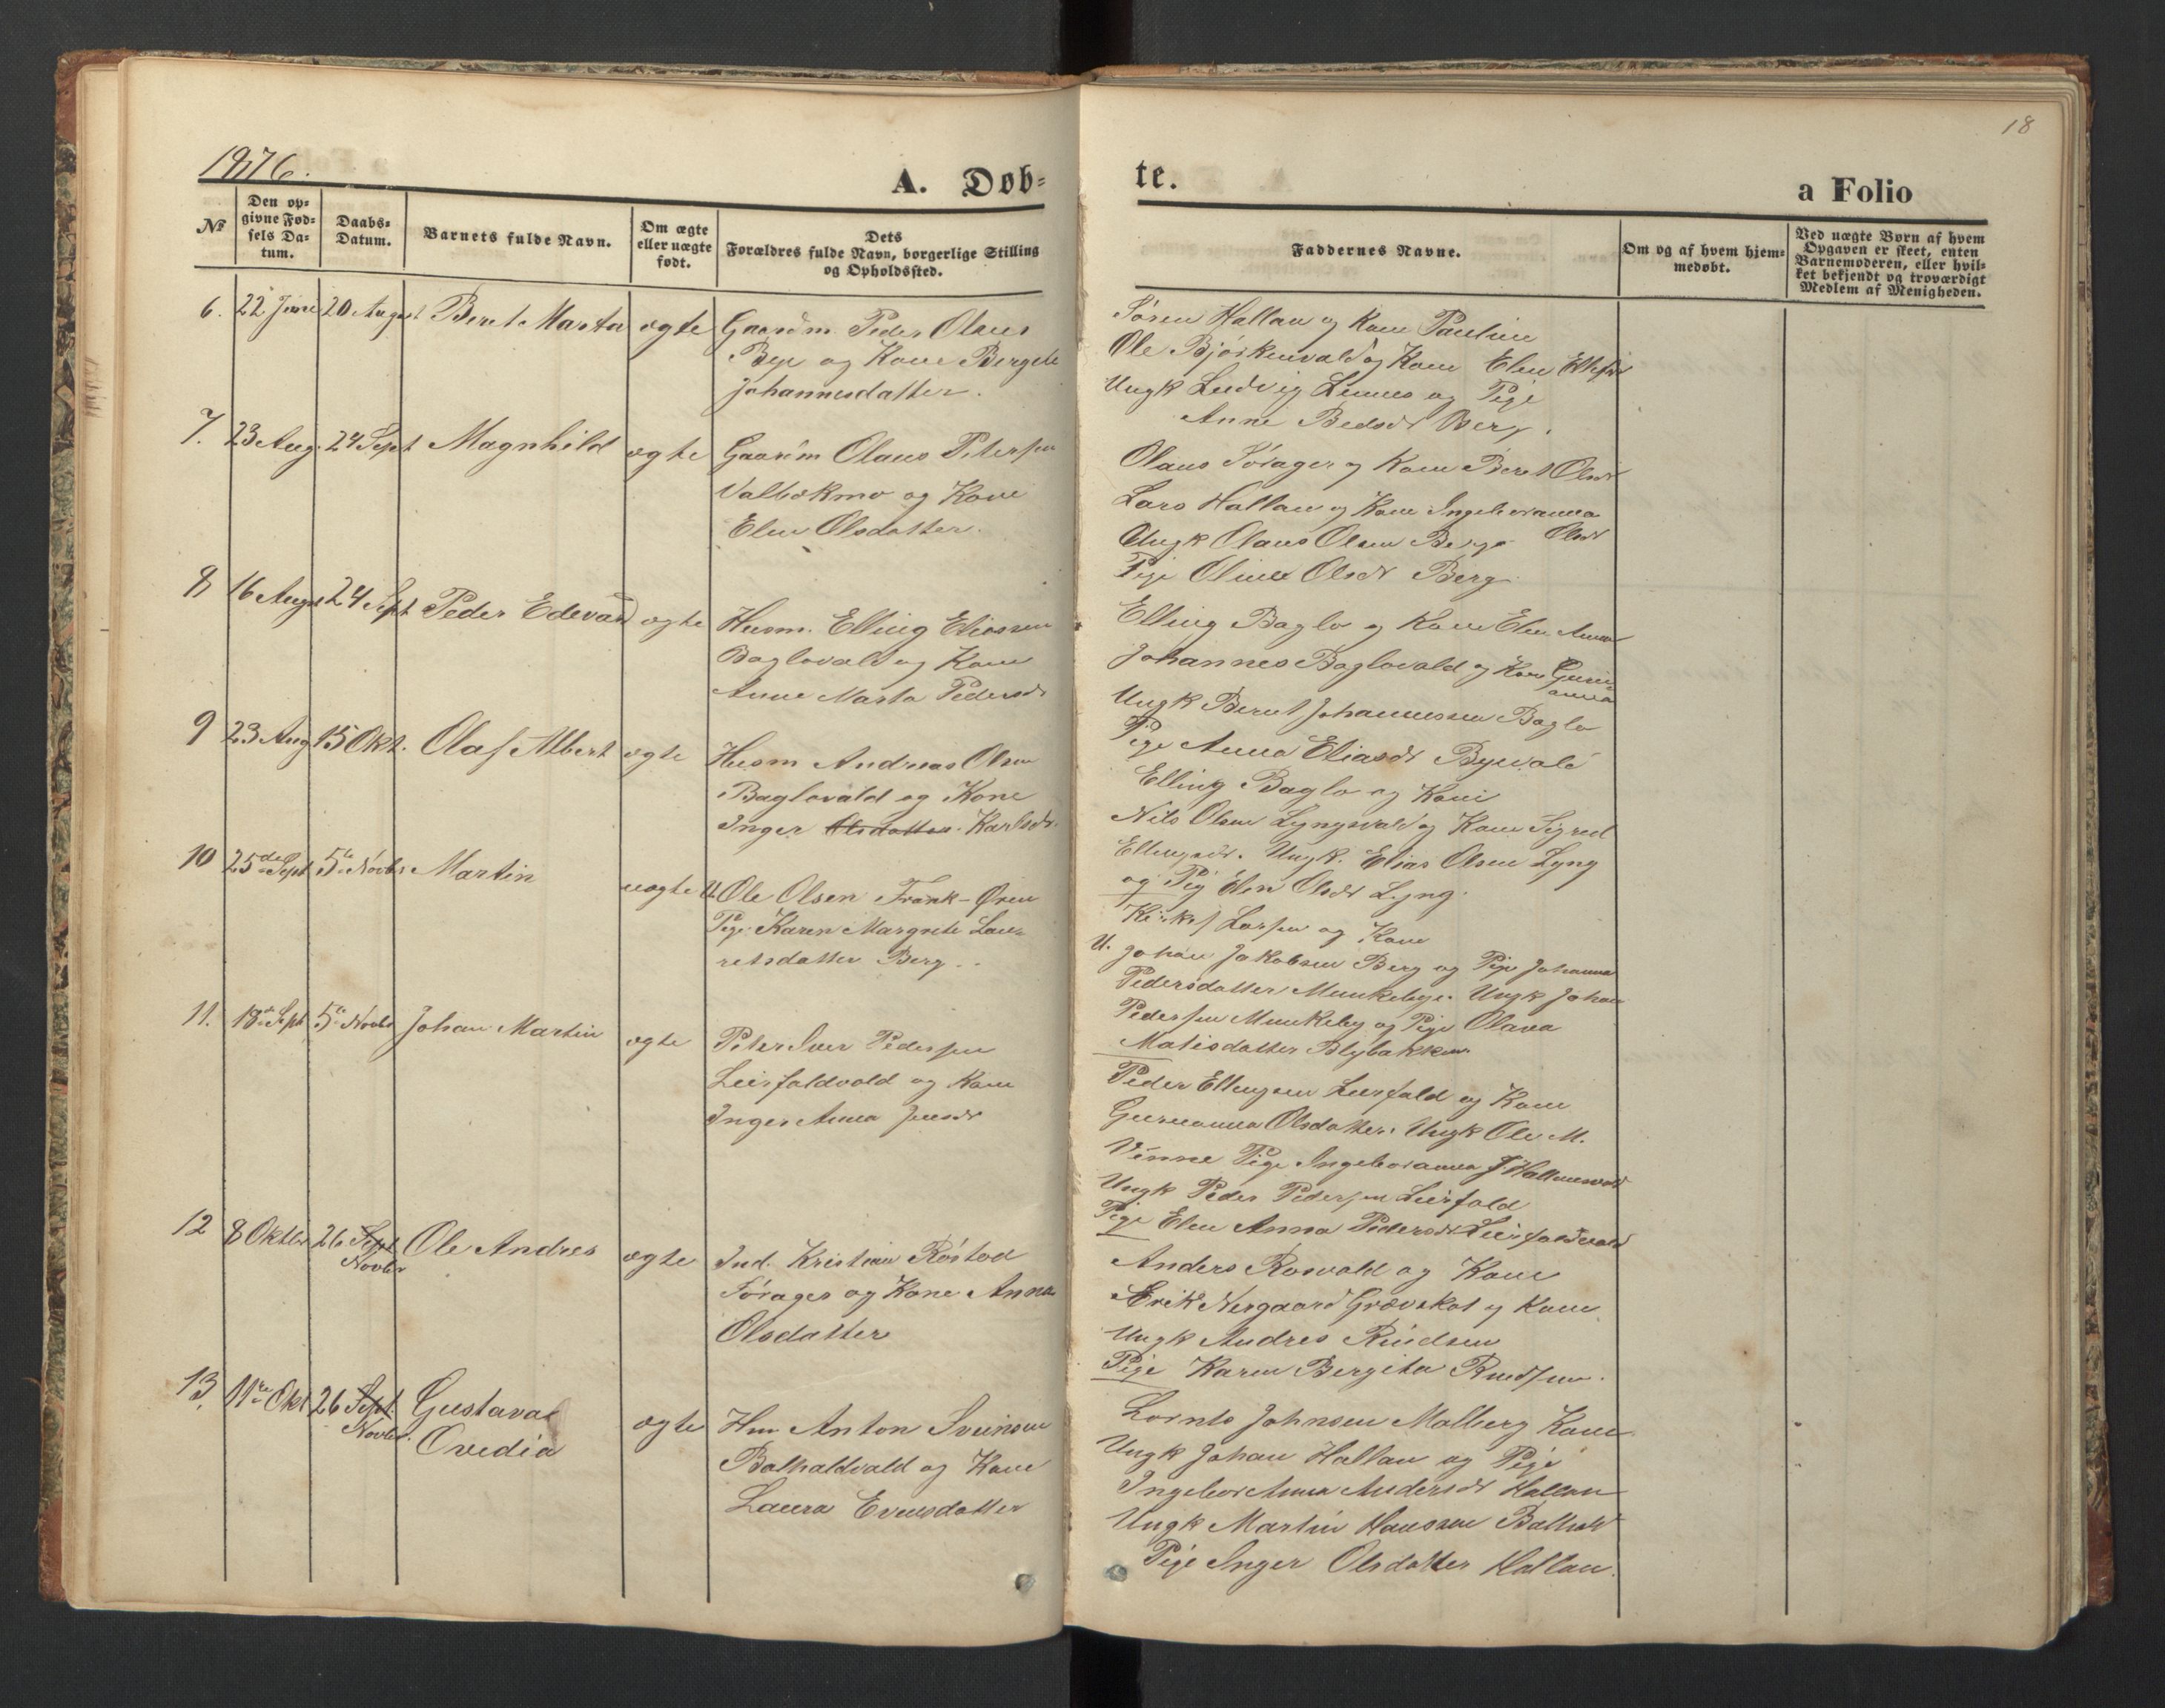 18
1876.
A. Døb=
te.
a Folio
№
Den op=
givne Fød=
sels Da=
tum.
Daabs=
Datum.
Barnets fulde Navn.
Om ægte
eller uægte
født.
Dets
Forældres fulde Navn, borgerlige Stilling
og Opholdssted.
Faddernes Navne.
Om og af hvem hjem=
medøbt.
Ved uægte Børn af hvem
Opgaven er skeet, enten
Barnemoderen, eller hvil=
ket bekjendt og troværdigt
Medlem af Menigheden.
6. 22 Juni 20 August Beret Marta ægte Gaardm. Peder Olaus
Bye og Kone Bergete
Johannesdatter.
Søren Hallan og Kone Pauline
Ole Bjørkenvald og Kone Elen
Ungk Ludvig og Pige
Anne Berg.
7. 23 Aug. 24 Sept Magnhild ægte Gaardm Olaus Petersen
Valbækmo og Kone
Elen Olsdatter.
Olaus Sørager og Kone Beret Olsdr
Lars Hallan og Kone Ingeboranna
Olsdr
Ungk Olaus Olsen Berg
Pige Oline Olsdr Berg
8 16 August 24 Sept Peder Edevard ægte Husm. Elling Eliassen
Baglovald og Kone
Anne Marta Pedersdr
Elling Baglo og Kone Elen Anna
Johannes Baglovald og Kone Guru=
anna
Ungk Bernt Johannessen Baglo
Pige Anna Eliasdr Byevald
9 23 Aug 15 Okt. Olaf Albert ægte Husm Andreas Olsen
Baglovald og Kone
Inger Olsdatter. Karlsdr.
Elling Baglo og Kone
Nils Olsen Lyngsvald og Kone Sigred
Ellingsdr. Ungk. Elias Olsen Lyng
og Pig Elen Olsdr Lyng.
10 25de Sept 5te Novbr Martin uægte U. Ole Olsen Frank-Øren
Pige Karen Margrete Lau=
retsdatter Berg..
Larsen og Kone
U. Johan Jakobsen Berg og Pige Johanna
Pedersdatter Munkebye. Ungk Johan
Pedersen Munkeby og Pige Olava
Matisdatter Blybakken
11. 18de Sept 5te Novbr Johan Martin ægte Peter Iver Pedersen
Leirfaldvald og Kone
Inger Anna Jensdr
Peder Ellingsen Leirfald og Kone
Guruanna Olsdatter. Ungk Ole M.
Vinne Pige Ingeboranna J Hallanvald
Ungk Peder Pedersen Leirfald
Pige Elen Anna Pedersdr Leirfaldvald
12 8 Oktbr 26 Sept Ole Andres ægte Ind. Kristian Røstad
Novbr
Sørager og Kone Anna
Olsdatter
Anders Rosvald og Kone
Erik Nesgaard Grævskot og Kone.
Ungk Andres Rindsem
Pige Karen Bergita Rindsem.
13. 11te Okt 26 Sept. Gustava ægte Hm Anton Sveinsen
Novbr. Ovedia
Balhaldvald og Kone
Laura Evensdatter
Lornts Johnsen Malberg Kone
Ungk Johan Hallan og Pige
Ingebor Anna Andersdr Hallan
Ungk Martin Hanssen Balhald
Pige Inger Olsdatter Hallan.